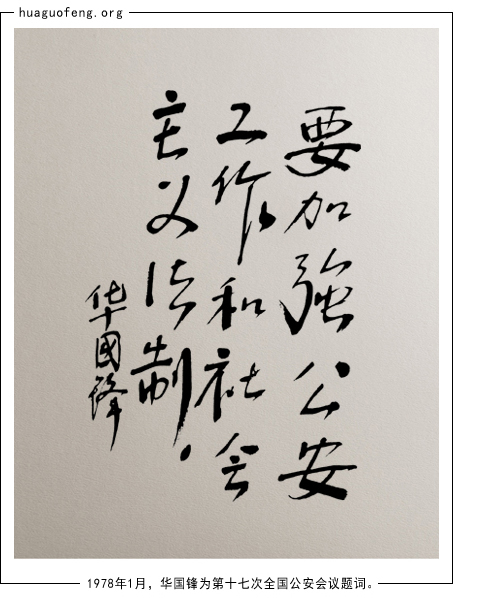 huaguofeng.org
要加強公安
工作和社会
主义法制.
华國锋
1978年1月，华国锋为第十七次全国公安会议题词。